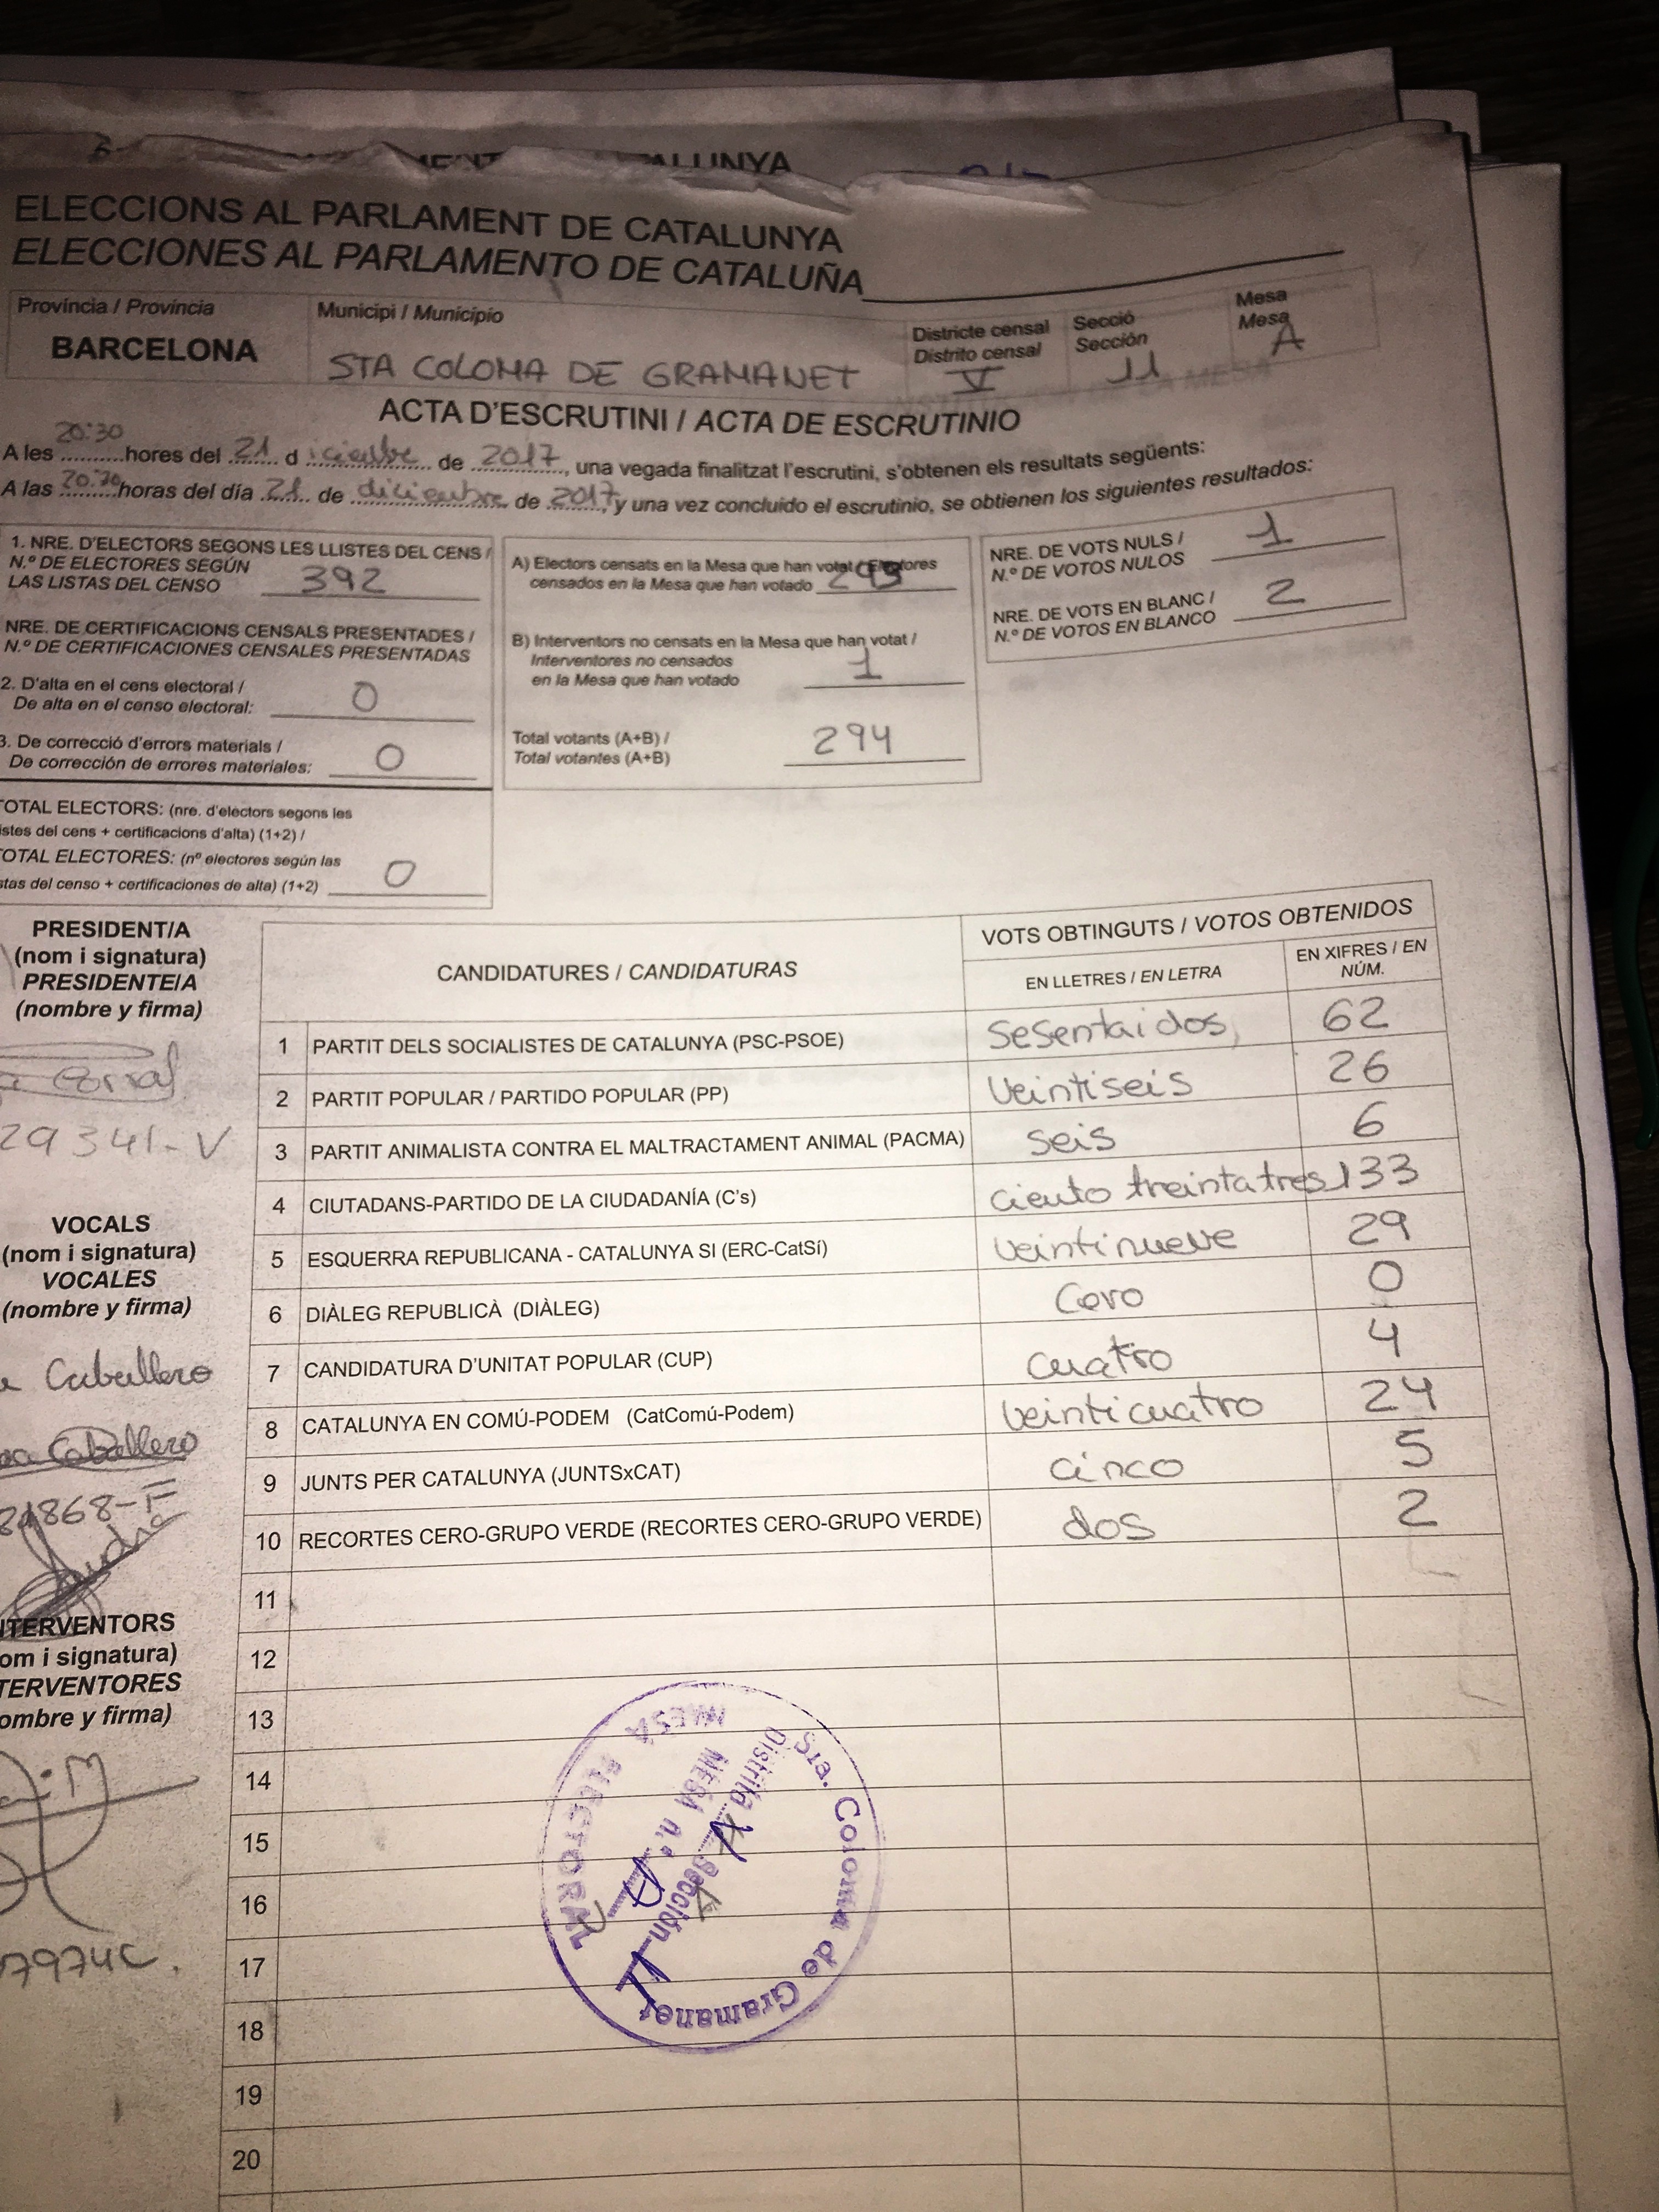 ELECCIONS AL PARLAMENT DE CATALUNYA
ELECCIONES AL PARLAMENTO DE CATALUÑA
Província / Provincia
BARCELONA
Municipi / Municipio
STA COLOMA DE GRAMANET
Districte censal
Distrito censal
V
Secció
Sección
11
Mesa
Mesa
A
ACTA D'ESCRUTINI / ACTA DE ESCRUTINIO
A les 20:30 hores del 21 d iciembre de 2017, una vegada finalitzat l'escrutini, s'obtenen els resultats següents:
A las 20:30 horas del día 21 de diciembre de 2017, y una vez concluido el escrutinio, se obtienen los siguientes resultados:
1. NRE. D'ELECTORS SEGONS LES LLISTES DEL CENS /
N.º DE ELECTORES SEGÚN
LAS LISTAS DEL CENSO 392
NRE. DE CERTIFICACIONS CENSALS PRESENTADES /
N.º DE CERTIFICACIONES CENSALES PRESENTADAS
2. D'alta en el cens electoral /
De alta en el censo electoral: 0
3. De correcció d'errors materials /
De corrección de errores materiales: 0
TOTAL ELECTORS: (nre. d'electors segons les
istes del cens + certificacions d'alta) (1+2) /
TOTAL ELECTORES: (nº electores según las
stas del censo + certificaciones de alta) (1+2) 0
A) Electors censats en la Mesa que han votat / Electores
censados en la Mesa que han votado 293
B) Interventors no censats en la Mesa que han votat /
Interventores no censados
en la Mesa que han votado 1
Total votants (A+B) /
Total votantes (A+B) 294
NRE. DE VOTS NULS /
N.º DE VOTOS NULOS 1
NRE. DE VOTS EN BLANC /
N.º DE VOTOS EN BLANCO 2
PRESIDENT/A
(nom i signatura)
PRESIDENTE/A
(nombre y firma)
Corral
29341-V
VOCALS
(nom i signatura)
VOCALES
(nombre y firma)
Caballero
Caballero
868-F
NTERVENTORS
om i signatura)
TERVENTORES
ombre y firma)
7974C.
CANDIDATURES / CANDIDATURAS
VOTS OBTINGUTS / VOTOS OBTENIDOS
EN LLETRES / EN LETRA
EN XIFRES / EN
NÚM.
1 PARTIT DELS SOCIALISTES DE CATALUNYA (PSC-PSOE) Sesentai dos 62
2 PARTIT POPULAR / PARTIDO POPULAR (PP) Veintiseis 26
3 PARTIT ANIMALISTA CONTRA EL MALTRACTAMENT ANIMAL (PACMA) seis 6
4 CIUTADANS-PARTIDO DE LA CIUDADANÍA (C's) ciento treinta tres 133
5 ESQUERRA REPUBLICANA - CATALUNYA SI (ERC-CatSí) veintinueve 29
6 DIÀLEG REPUBLICÀ (DIÀLEG) Cero 0
7 CANDIDATURA D'UNITAT POPULAR (CUP) cuatro 4
8 CATALUNYA EN COMÚ-PODEM (CatComú-Podem) veinticuatro 24
9 JUNTS PER CATALUNYA (JUNTSxCAT) cinco 5
10 RECORTES CERO-GRUPO VERDE (RECORTES CERO-GRUPO VERDE) dos 2
11
12
13
14
15
16
17
18
19
20
Sta. Coloma de Gramanet
Distrito V Sección 11
MESA n.º A
MESA ELECTORAL